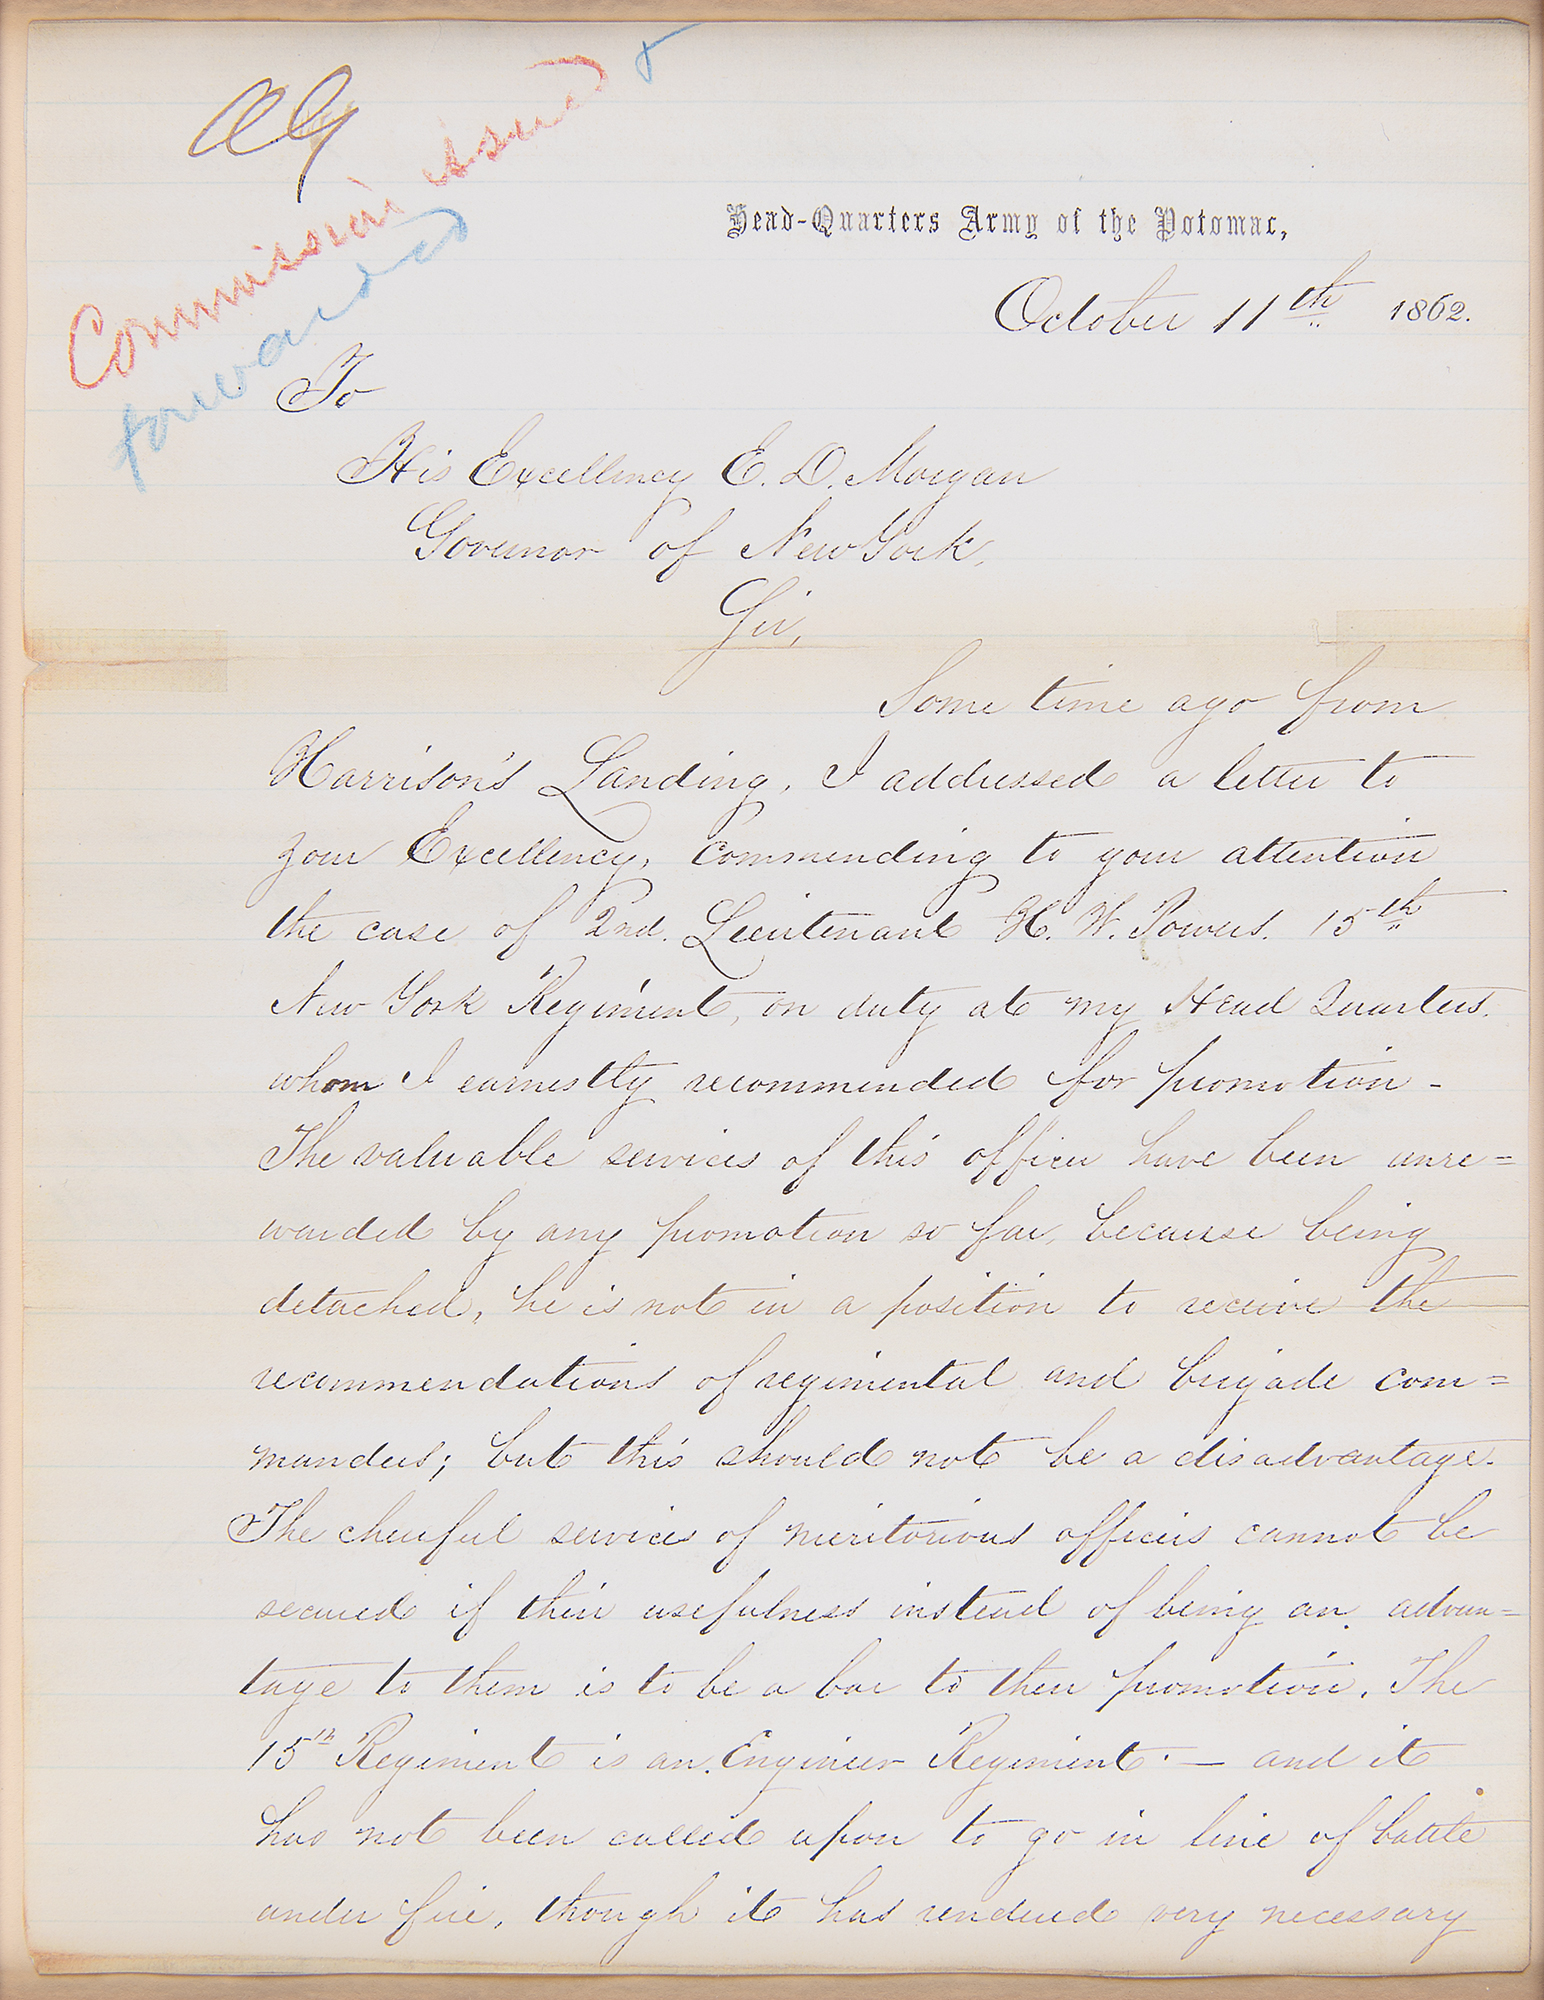 AG
Commission issued
forwarded
Head-Quarters Army of the Potomac,
October 11th 1862.
To
His Excellency E. D. Morgan
Governor of New York.
Sir,
Some time ago from
Harrison's Landing, I addressed a letter to
your Excellency, commending to your attention
the case of 2nd. Lieutenant H. W. Powers. 15th
New York Regiment, on duty at my Head Quarters.
whom I earnestly recommended for promotion -
The valuable services of this officer have been unre=
warded by any promotion so far, because being
detached, he is not in a position to receive the
recommendations of regimental and brigade com=
manders; but this should not be a disadvantage.
The cheerful services of meritorious officers cannot be
secured if their usefulness instead of being an advan=
tage to them is to be a bar to their promotion. The
15th Regiment is an Engineer Regiment. — and it
has not been called upon to go in line of battle
under fire, though it has rendered very necessary